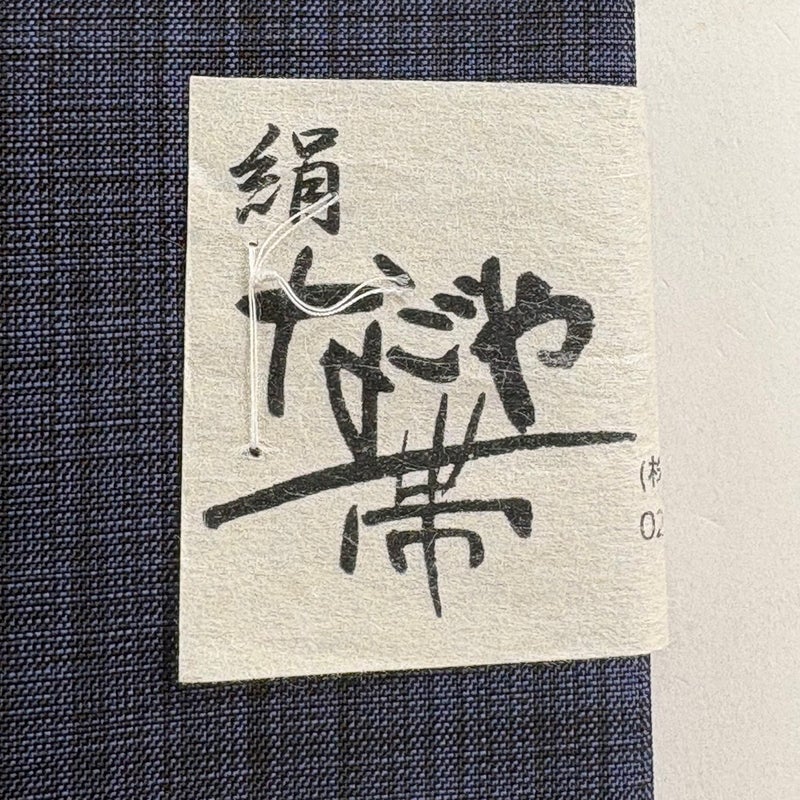 絹
なごや
帯
(株
02